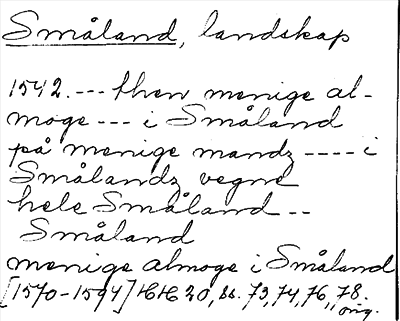 Småland, landskap
1542. --- then menige al-
moge --- i Småland
på menige mandz ---- i
Smålandz vegne
hele Småland --
Småland
menige almoge i Småland
[1570-1594] HH 20, ss. 73, 74, 76, 78.
orig.